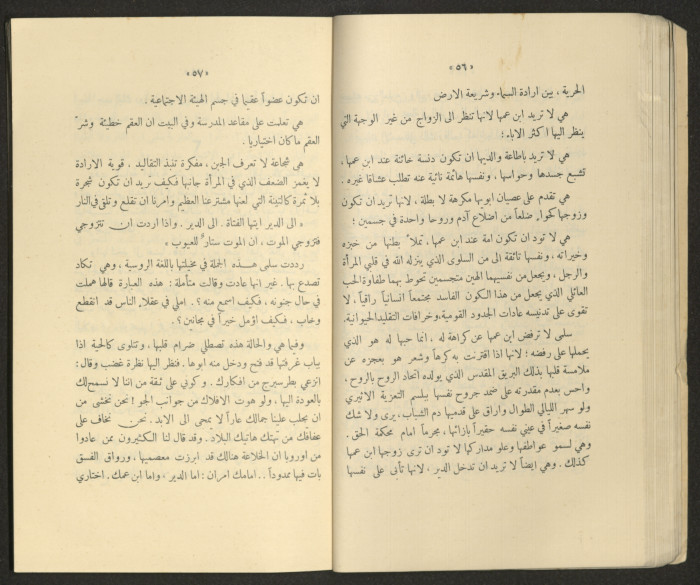 «٥٦»
الحرية، بين ارادة السماء وشريعة الارض
هي لا تريد ابن عمها لانها تنظر الى الزواج من غير الوجهة التي
ينظر اليها اكثر الاباء؛
هي لا تريد باطاعة والديها ان تكون دنسة خائنة عند ابن عمها،
تشبع جسدها وحواسها، ونفسها هائمة نائية عنه تطلب عشاقا غيره.
هي تقدم على عصيان ابويها مكرهة لا بطلة، لانها تريد ان تكون
وزوجها كحواء ضلعاً من اضلاع آدم وروحا واحدة في جسمين؛
هي لا تود ان تكون امة عند ابن عمها، تملأ بطنها من خبزه
وخيراته، ونفسها تائقة الى من السلوى الذي ينزله الله في قلبي المرأة
والرجل، ويجعل من نفسيهما الهين متجسمين تحوط بهما طفاوة الحب
العائلي الذي يجعل من هذا الكون الفاسد مجتمعاً انسانياً راقياً، لا
تقوى على تدنيسه عادات الجدود القومية، وخرافات التقليد الحيوانية.
سلمى لا ترفض ابن عمها عن كراهة له، انما حبها له هو الذي
يحملها على رفضه؛ لانها اذا اقترنت به كرهاً وشعر هو بعجزه عن
ملامسة قلبها بذلك البريق المقدس الذي يولده اتحاد الروح بالروح،
واحس بعدم مقدرته على ضمد جروح نفسها ببلسم التعزية الاثيري
ولو سهر الليالي الطوال واراق على قدميها دم الشباب، يرى ولا شك
نفسه صغيراً في عيني نفسه حقيراً بازائها، مجرماً امام محكمة الحق.
وهي لسمو عواطفها وعلو مداركها لا تود ان ترى زوجها ابن عمها
كذلك. وهي ايضاً لا تريد ان تدخل الدير، لانها تأبى على نفسها
«٥٧»
ان تكون عضواً عقيما في جسم الهيئة الاجتماعية.
هي تعلمت على مقاعد المدرسة وفي البيت ان العقم خطيئة وشرّ
العقم ما كان اختياريا.
هي شجاعة لا تعرف الجبن، مفكرة تنبذ التقاليد. قوية الارادة
لا يغمز الضعف الذي في المرأة جانبها فكيف تريد ان تكون شجرة
بلا ثمرة كالتينة التي لعنها مشترعنا العظيم وامرنا ان تقلع وتلقى في النار
« الى الدير ايتها الفتاة. الى الدير. واذا اردت ان تتزوجي
فتزوجي الموت، ان الموت ستارٌ للعيوب »
رددت سلمى هذه الجملة في مخيلتها باللغة الروسية، وهي تكاد
تصدع بها. غير انها عادت وقالت متأملة: هذه العبارة قالها هملت
في حال جنونه، فكيف اسمع منه؟. املي في عقلاء الناس قد انقطع
وخاب، فكيف اؤمل خيراً في مجانين؟.
وفيما هي والحالة هذه تصطلي ضرام قلبها، وتتلوى كالحية اذا
بباب غرفتها قد فتح ودخل منه ابوها. فنظر اليها نظرة غضب وقال:
انزعي بطرسبرج من افكارك. وكوني على ثقة من اننا لا نسمح لك
بالعودة اليها، ولو هوت الافلاك من جوانب الجو! نحن نخشى من
ان يجلب علينا جمالك عاراً لا يمحى الى الابد. نحن نخاف على
عفافك من تهتك هاتيك البلاد. وقد قال لنا الكثيرون ممن عادوا
من اوروبا ان الخلاعة هنالك قد ابرزت معصميها، ورواق الفسق
بات فيها ممدوداً.. امامك امران: اما الدير، واما ابن عمك. اختاري